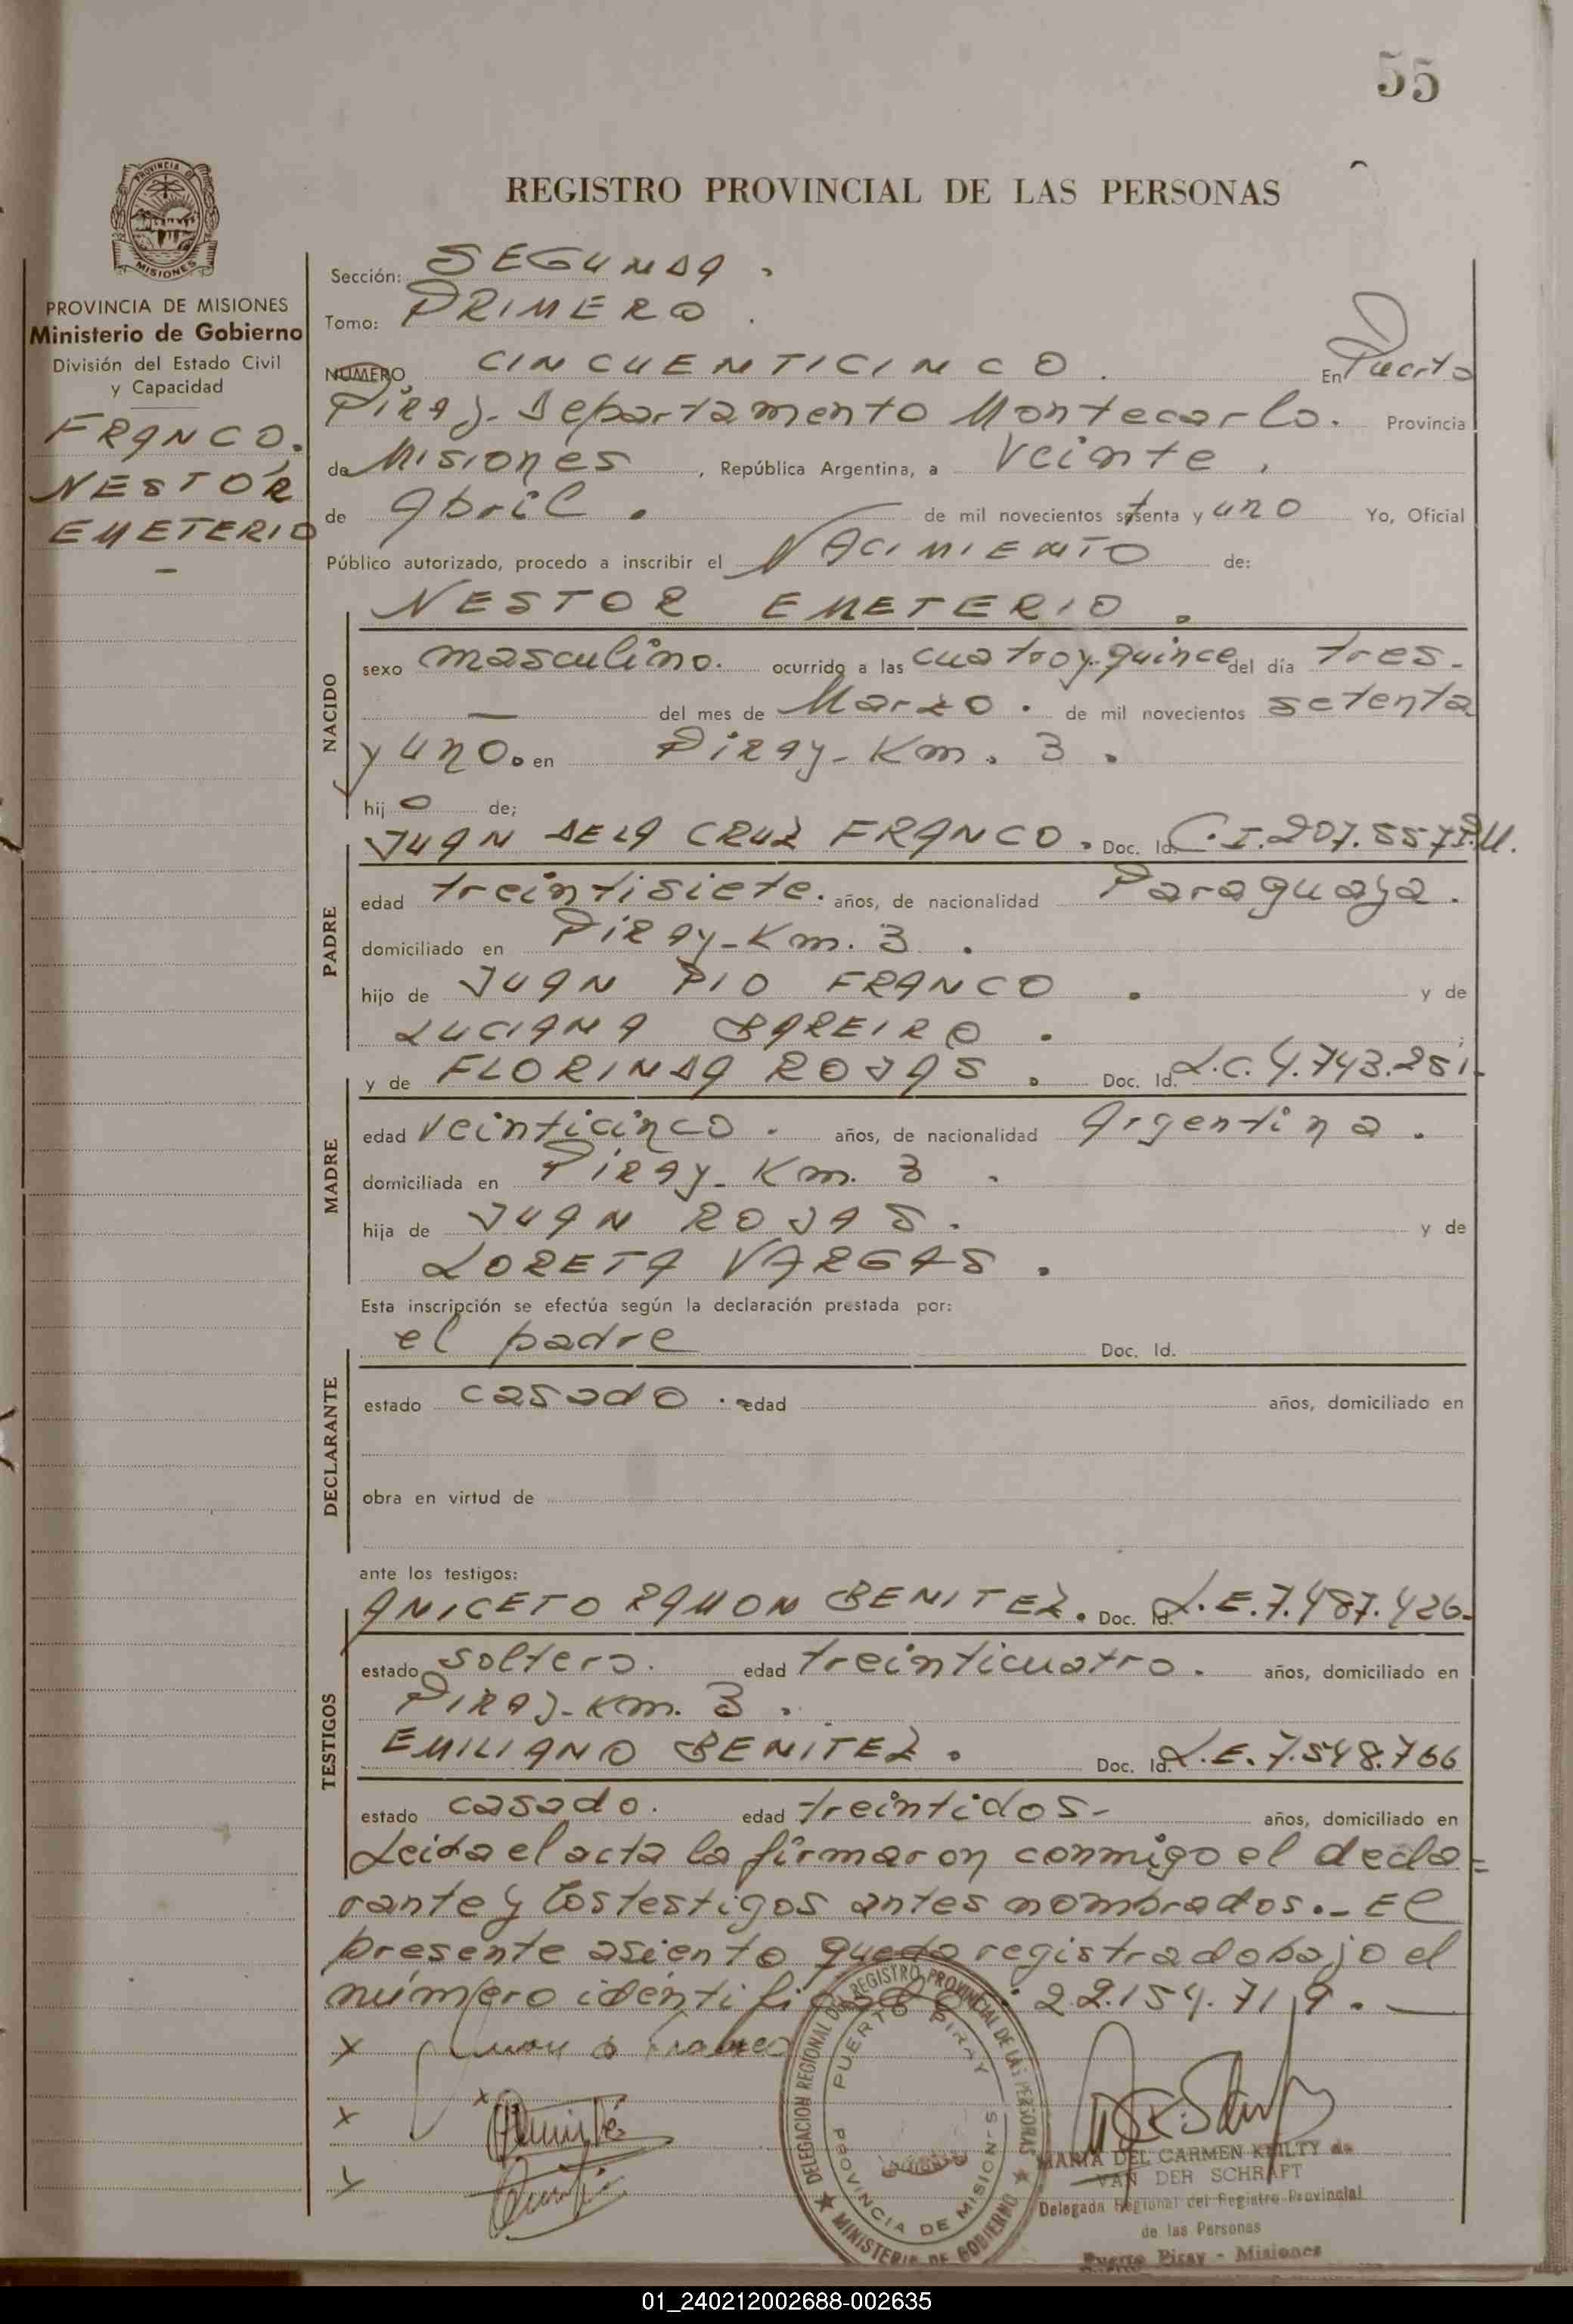 55
REGISTRO PROVINCIAL DE LAS PERSONAS
PROVINCIA DE
MISIONES
PROVINCIA DE MISIONES
Ministerio de Gobierno
División del Estado Civil
y Capacidad
FRANCO.
NESTOR
EMETERIO
Sección: SEGUNDA.
Tomo: PRIMERO.
NUMERO CINCUENTICINCO. En Puerto
Piray. Departamento Montecarlo. Provincia
de Misiones, República Argentina, a veinte.
de abril. de mil novecientos setenta y uno Yo, Oficial
Público autorizado, procedo a inscribir el NACIMIENTO de:
NESTOR EMETERIO.
NACIDO
sexo masculino. ocurrido a las cuatro y quince del día tres-
— del mes de Marzo. de mil novecientos setenta
y uno. en Piray-Km. 3.
hijo de;
PADRE
JUAN DE LA CRUZ FRANCO. Doc. Id. C.I. 207.557 P.M.
edad treintisiete. años, de nacionalidad Paraguaya.
domiciliado en Piray-Km. 3.
hijo de JUAN PIO FRANCO. y de
LUCIANA BAREIRO.
MADRE
y de FLORINDA ROJAS. Doc. Id. L.C. 4.743.251-
edad veinticinco. años, de nacionalidad Argentina.
domiciliada en Piray-Km. 3.
hija de JUAN ROJAS. y de
LORETA VARGAS.
DECLARANTE
Esta inscripción se efectúa según la declaración prestada por:
el padre Doc. Id.
estado casado. edad años, domiciliado en
obra en virtud de
TESTIGOS
ante los testigos:
ANICETO RAMON BENITEZ. Doc. Id. L.E. 7.487.426-
estado soltero. edad treinticuatro. años, domiciliado en
PIRAY-Km. 3.
EMILIANO BENITEZ. Doc. Id. L.E. 7.548.766
estado casado. edad treintidos- años, domiciliado en
Leida el acta la firmaron conmigo el decla=
rante y los testigos antes nombrados.- El
presente asiento queda registrado bajo el
número identificado: 22.154.719.—
DELEGACION REGIONAL DEL REGISTRO PROVINCIAL DE LAS PERSONAS
PUERTO PIRAY
PROVINCIA DE MISIONES
MINISTERIO DE GOBIERNO
MARIA DEL CARMEN KEILTY de
VAN DER SCHRAFT
Delegada Regional del Registro Provincial
de las Personas
Puerto Piray - Misiones
01_240212002688-002635